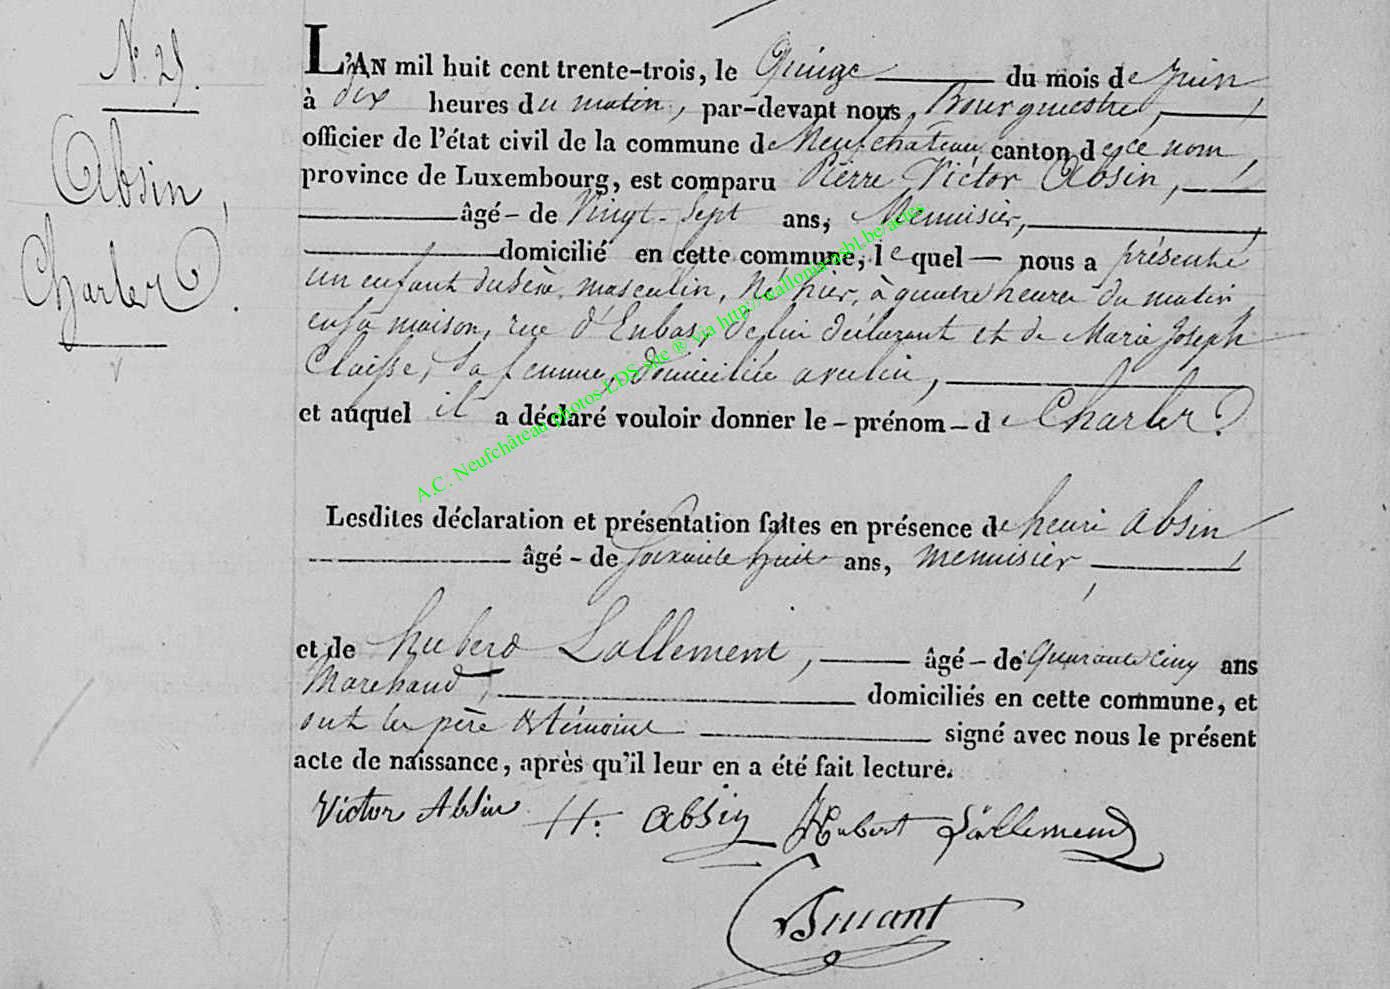 N. 25.
Absin,
Charles.
L'AN mil huit cent trente-trois, le Quinze du mois de Juin
à dix heures du matin, par-devant nous Bourgmestre,
officier de l'état civil de la commune de Neufchâteau canton de ce nom,
province de Luxembourg, est comparu Pierre Victor Absin,
âgé - de Vingt-Sept ans, Menuisier,
domicilié en cette commune, lequel — nous a présenté
un enfant du sèxe masculin, né hier, à quatre heures du matin
en sa maison, rue d'Enbas, de lui déclarant et de Marie Joseph
Claisse, sa femme, domiciliée avec lui,
et auquel il a déclaré vouloir donner le - prénom - de Charles.
Lesdites déclaration et présentation faites en présence de henri Absin
âgé - de soixante huit ans, menuisier,
et de hubert Lallement, âgé - de Quarante cinq ans
Marchand, domiciliés en cette commune, et
ont les père & témoins signé avec nous le présent
acte de naissance, après qu'il leur en a été fait lecture.
Victor Absin H: absin Hubert Lallemend
A.C. Neufchâteau photos LDS site ® via http://wallonia-asbl.be/actes